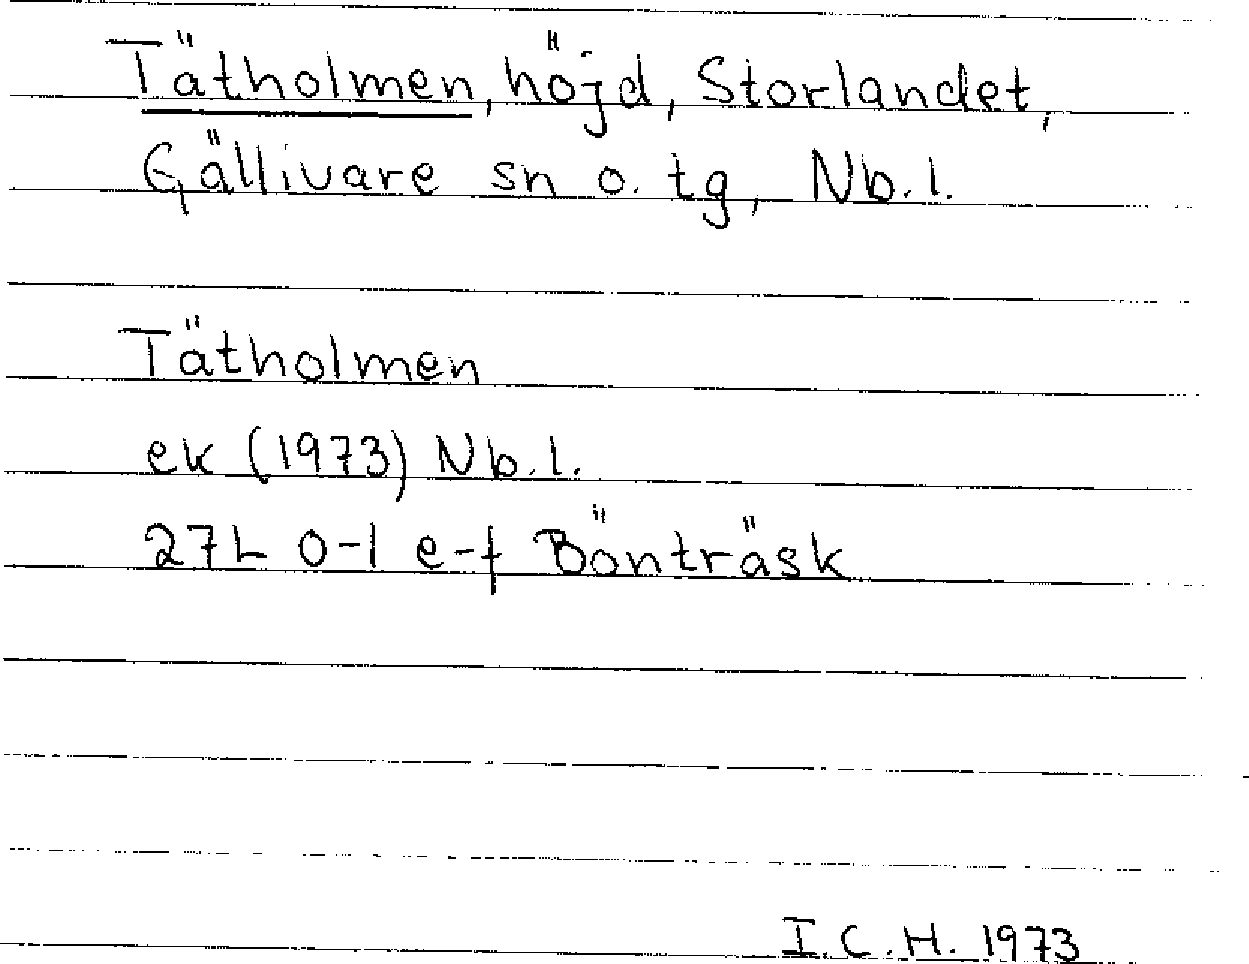 Tätholmen, höjd, Storlandet,
Gällivare sn o. tg, Nb. l.
Tätholmen
ek (1973) Nb. l.
27L 0-1 e-f Bönträsk
I. C. H. 1973